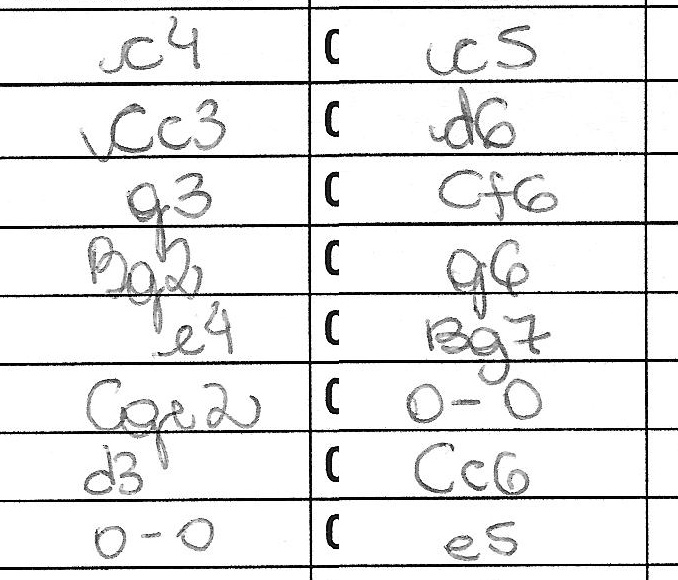 c4 c5
Cc3 d6
g3 Cf6
Bg2 g6
e4 Bg7
Cge2 0-0
d3 Cc6
0-0 e5